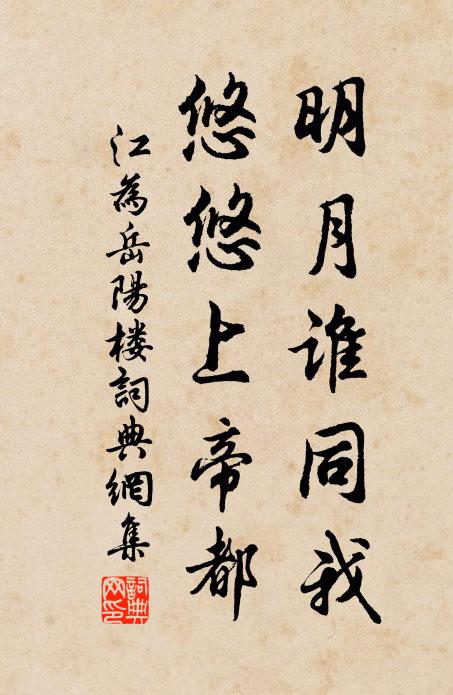 明月谁同我
悠悠上帝都
江為岳陽楼詞典網集
詞典網印